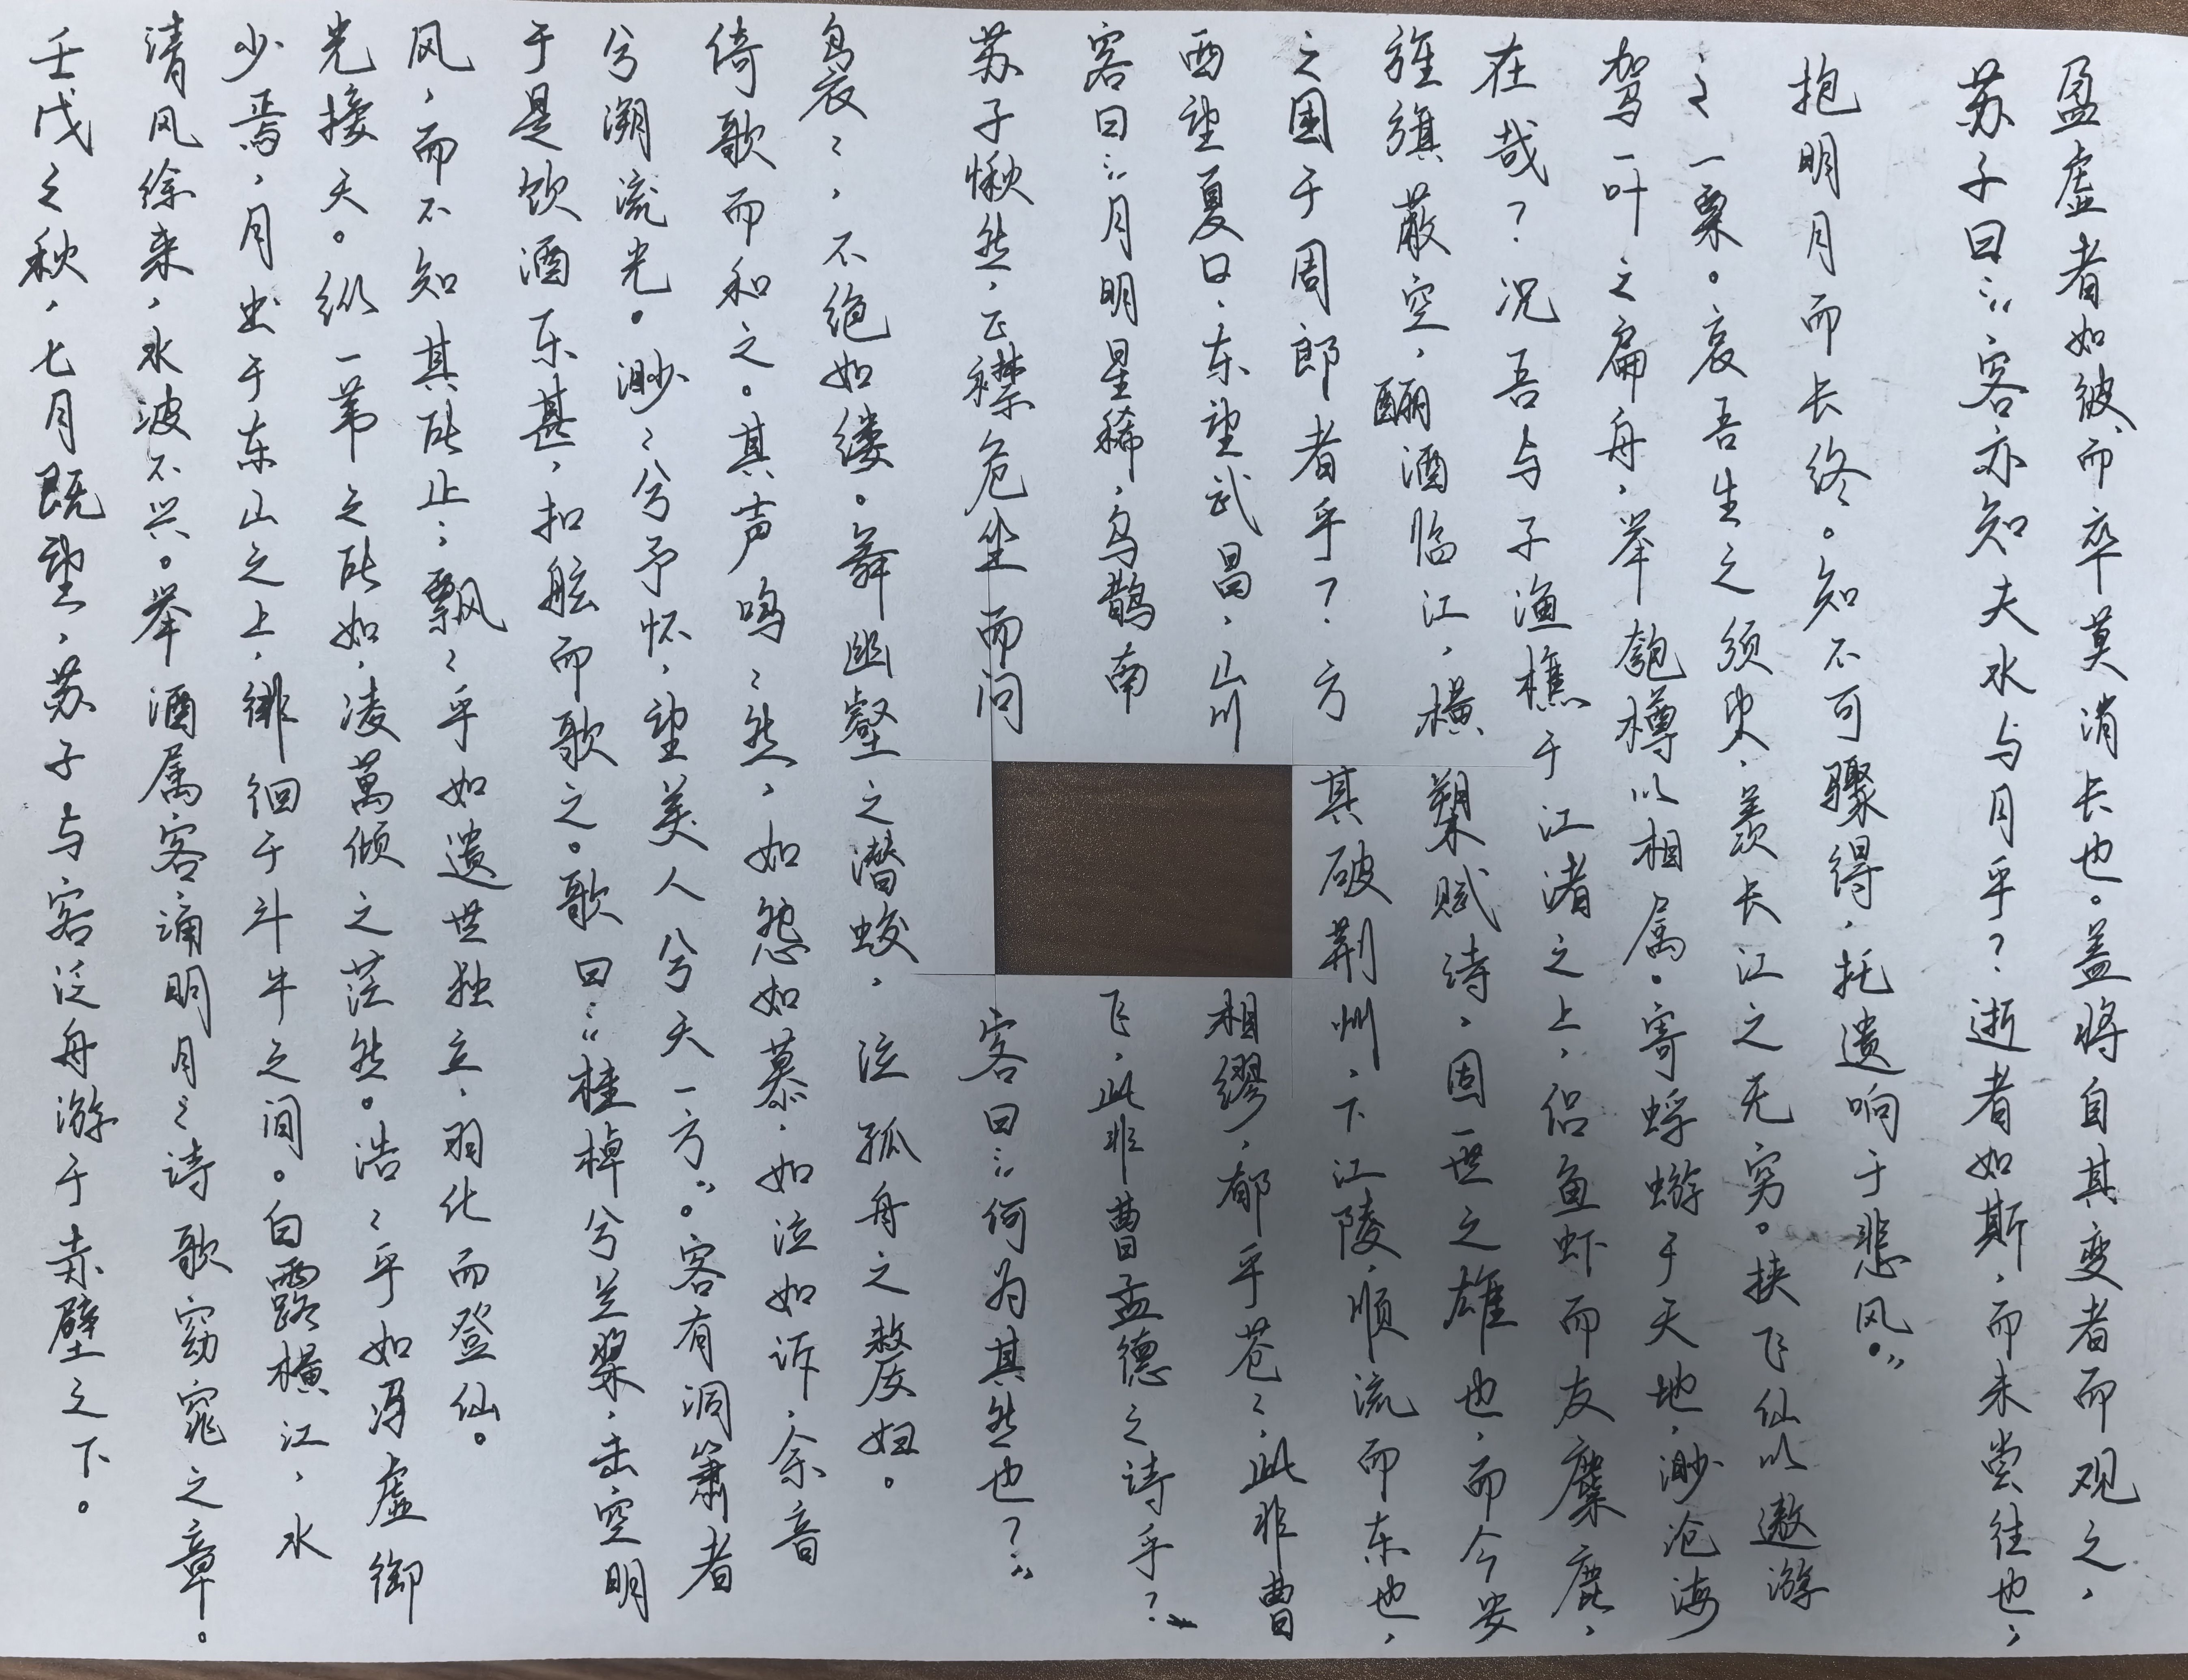 壬戌之秋，七月既望，苏子与客泛舟游于赤壁之下。
清风徐来，水波不兴。举酒属客，诵明月之诗歌窈窕之章。
少焉，月出于东山之上，徘徊于斗牛之间。白露横江，水
光接天。纵一苇之所如，凌萬倾之茫然。浩〻乎如冯虚御
风，而不知其所止；飘〻乎如遗世独立，羽化而登仙。
于是饮酒乐甚，扣舷而歌之。歌曰：“桂棹兮兰桨，击空明
兮溯流光。渺〻兮予怀，望美人兮天一方”。客有洞箫者
倚歌而和之。其声鸣〻然，如怨如慕，如泣如诉，余音
袅〻，不绝如缕。舞幽壑之潜蛟，泣孤舟之嫠妇。
苏子愀然，正襟危坐而问客曰：“何为其然也？”
客曰：“月明星稀，乌鹊南飞，此非曹孟德之诗乎？
西望夏口，东望武昌，山川相缪，郁乎苍〻，此非曹
之困于周郎者乎？方其破荆州，下江陵，顺流而东也，
旌旗蔽空，酾酒临江，横槊赋诗，固一世之雄也，而今安
在哉？况吾与子渔樵于江渚之上，侣鱼虾而友麋鹿，
驾一叶之扁舟，举匏樽以相属。寄蜉蝣于天地，渺沧海
之一粟。哀吾生之须臾，羡长江之无穷。挟飞仙以遨游
抱明月而长终。知不可骤得，托遗响于悲风。”
苏子曰：“客亦知夫水与月乎？逝者如斯，而未尝往也，
盈虚者如彼，而卒莫消长也。盖将自其变者而观之，